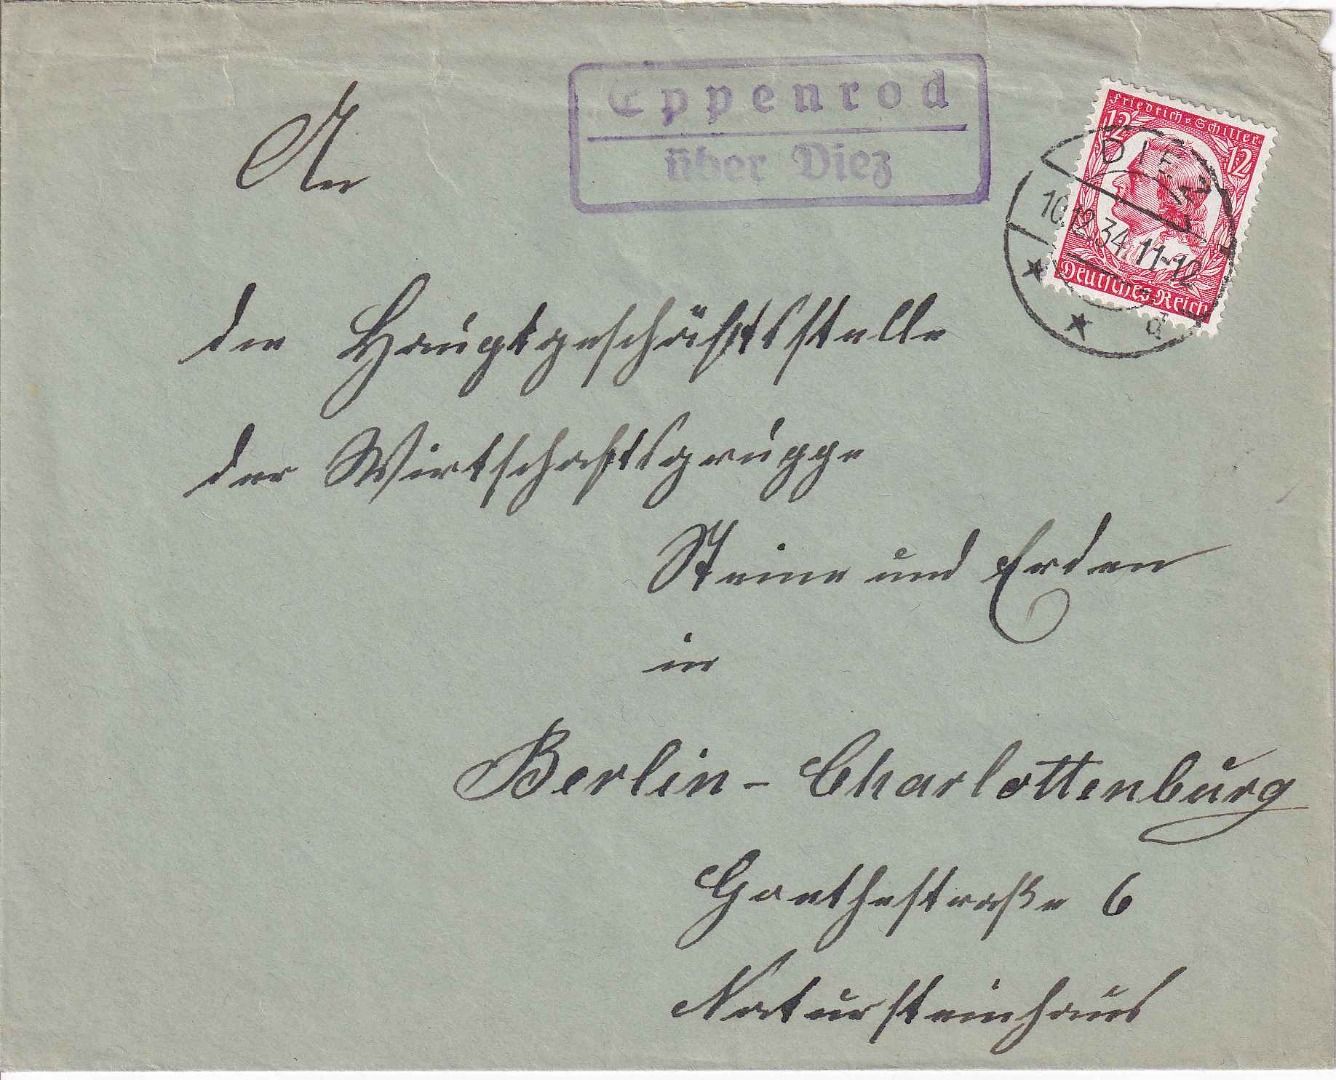 Eppenrod
über Diez
Friedrich-Schiller
12 12
Deutsches Reich
DIEZ
10.12.34.11-12
d
An
die Hauptgeschäftsstelle
der Wirtschaftsgruppe
Steine und Erden
in
Berlin-Charlottenburg
Goethestraße 6
Natursteinhaus